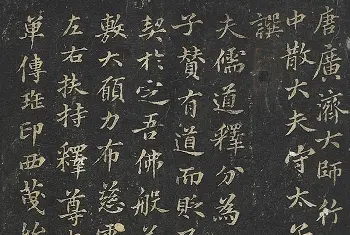 唐廣濟大師行
中散大夫守太
譔
夫儒道釋分為
子賛有道而貶
契於定吾佛般
敷大願力布慈
左右扶持釋尊
單傳印西